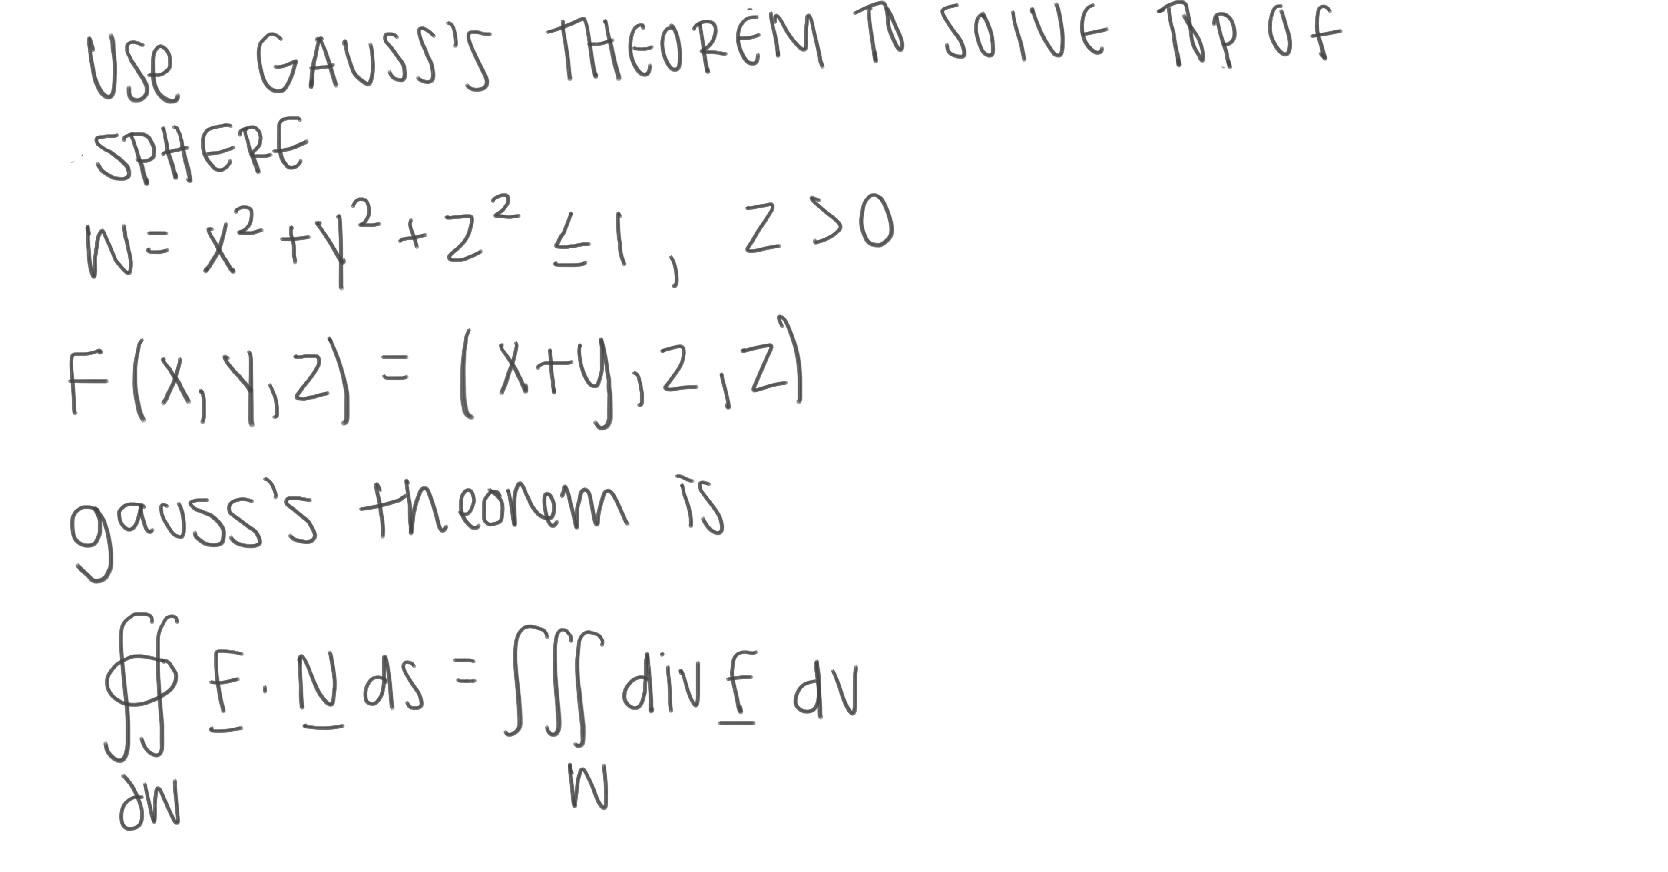 USE GAUSS'S THEOREM TO SOLVE TOP OF
SPHERE
W = x² + y² + z² ≤ 1, z > 0
F(x, y, z) = (x+y, z, z)
gauss's theorem is
∯ F · N ds = ∭ div F dv
∂W W